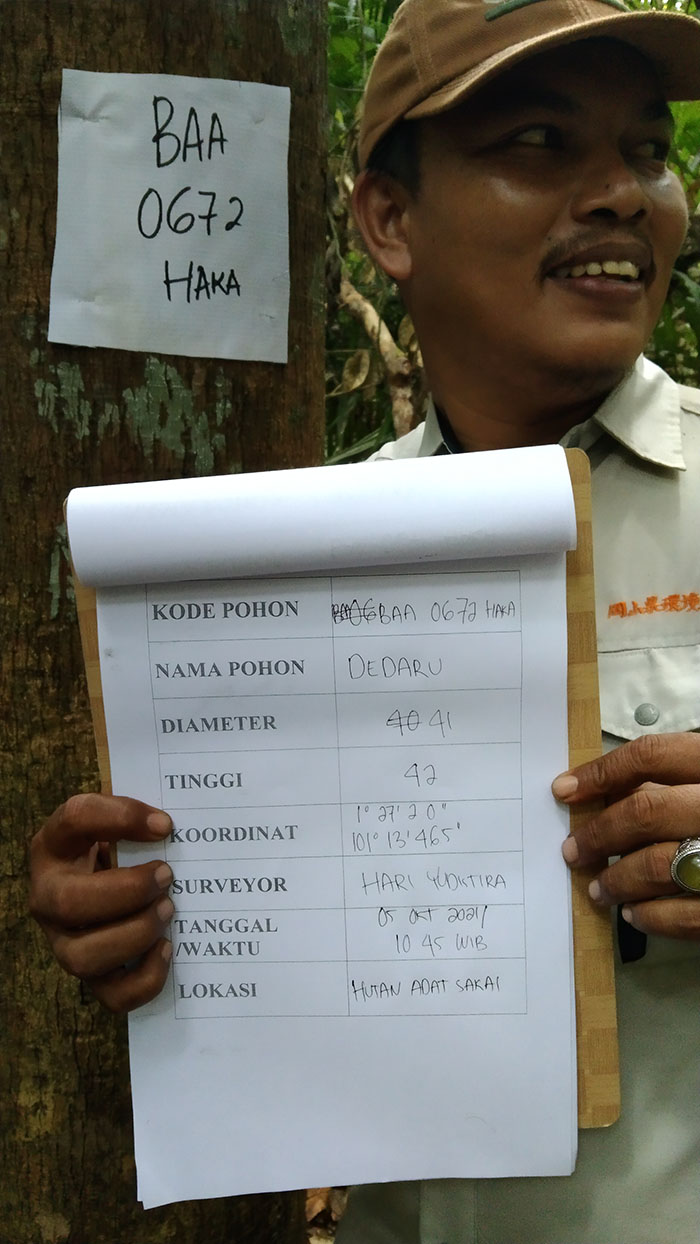 BAA
0672
HAKA
KODE POHON BAA 0672 HAKA
NAMA POHON DEDARU
DIAMETER 40 41
TINGGI 42
KOORDINAT 1° 27' 20"
101° 13' 465'
SURVEYOR HARI YUDISTIRA
TANGGAL
/WAKTU
05 OKT 2021/
10 45 WIB
LOKASI HUTAN ADAT SAKAI